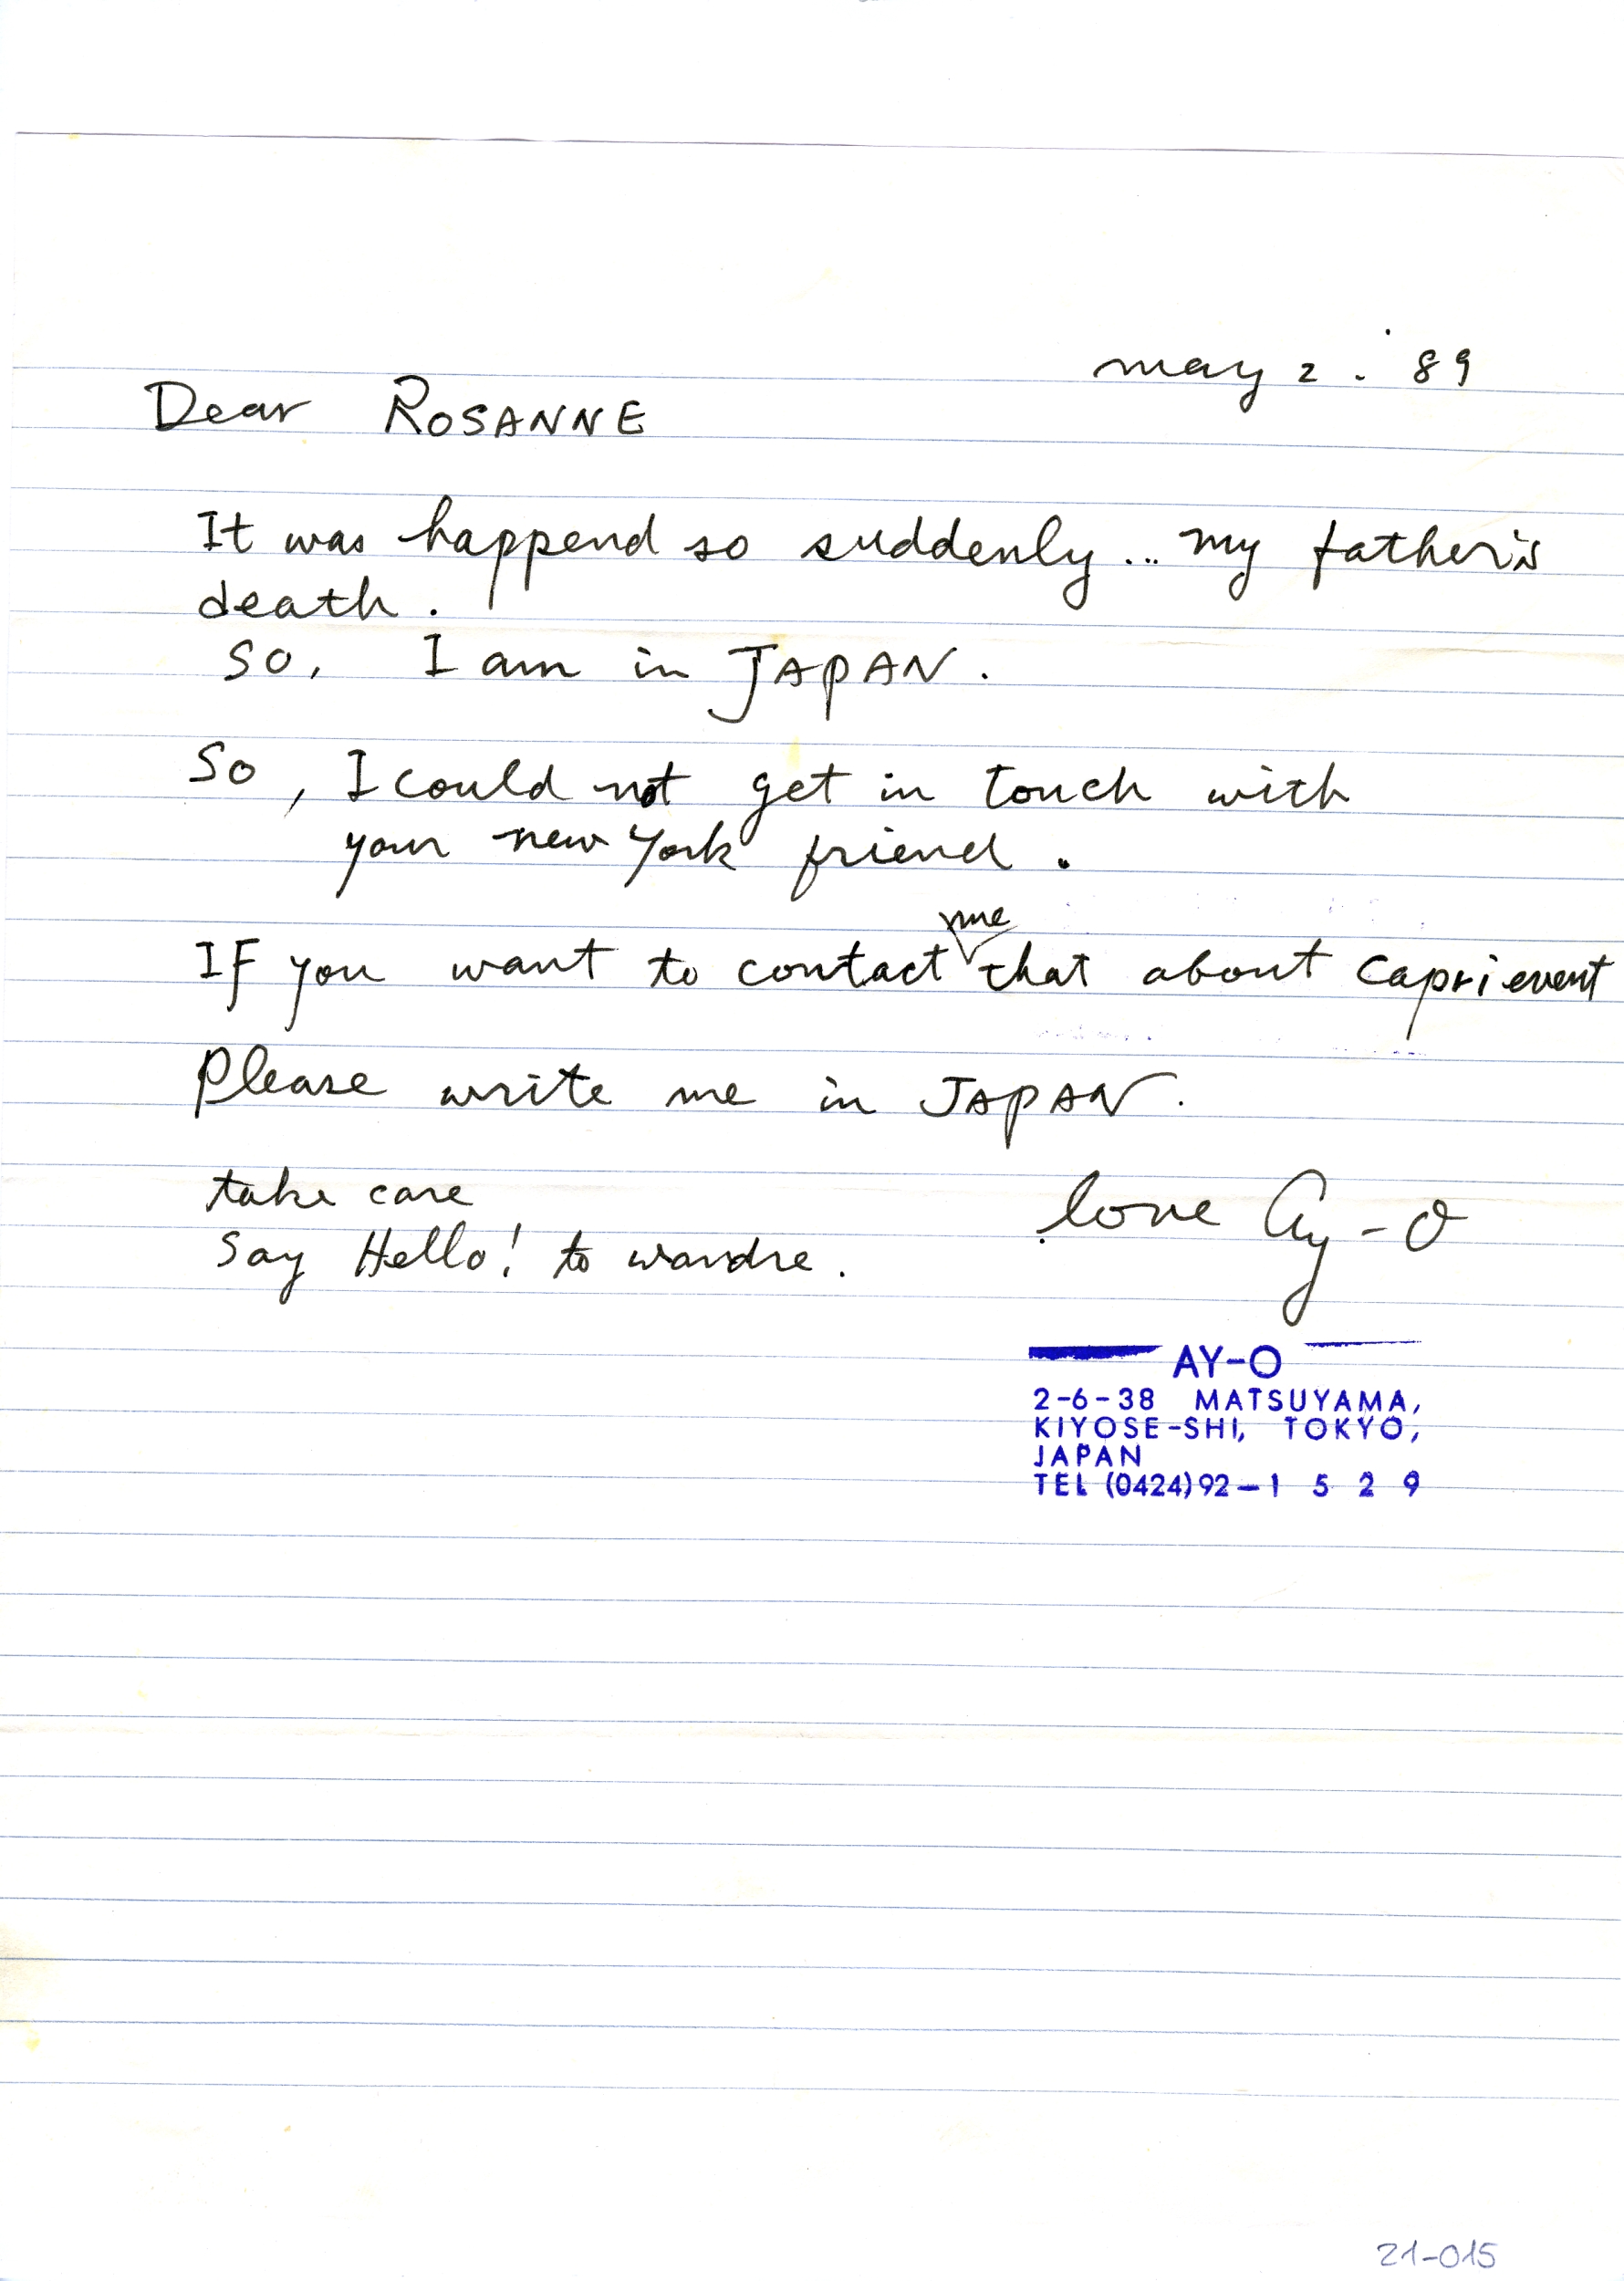 may 2. '89
Dear ROSANNE
It was happend so suddenly... my father's
death.
So, I am in JAPAN.
So, I could not get in touch with
your new York friend.
me
IF you want to contact that about capri event
Please write me in JAPAN.
take care
Say Hello! to wandre.
love Ay-O
AY-O
2-6-38 MATSUYAMA,
KIYOSE-SHI, TOKYO,
JAPAN
TEL (0424)92-1529
21-015